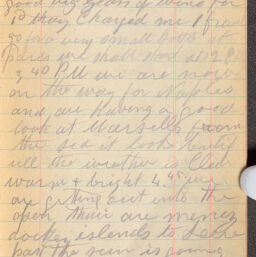 good big glass of wine for
they charged me 1 franc
so for a very small bottle at
Paris we shall start at 12 P.M
3.40 P.M we are now
on the way for Naples
and are having a good
look at Marsells from
the sea it looks
the weather is Clear
warm & bright 4.45 we
are getting out into the
open there are
islands to
past the sun is going